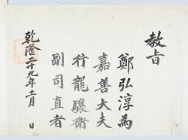 敎旨
鄭弘淳為
嘉善大夫
行龍驤衛
副司直者
乾隆二十九年二月 日